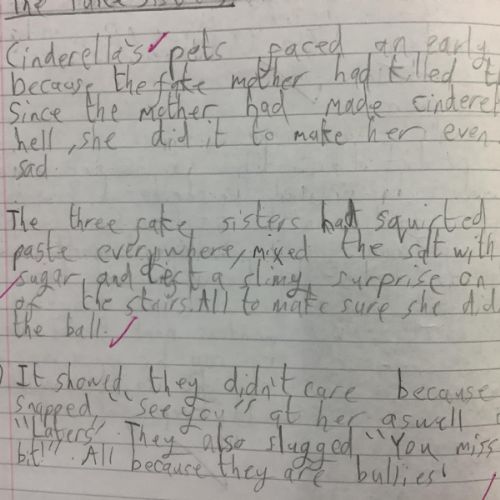 The fake sisters
Cinderella's pets paced an early
because the fake mother had killed t
Since the mother had made cinderel
hell, she did it to make her even
sad.
The three fake sisters had squirted
paste everywhere, mixed the salt with
sugar, and left a slimy surprise on
of the stairs. All to make sure she did
the ball.
) It showed they didn't care because
snapped "see you" at her aswell
"Laters". They also slugged "You miss
bit!" All because they are bullies!